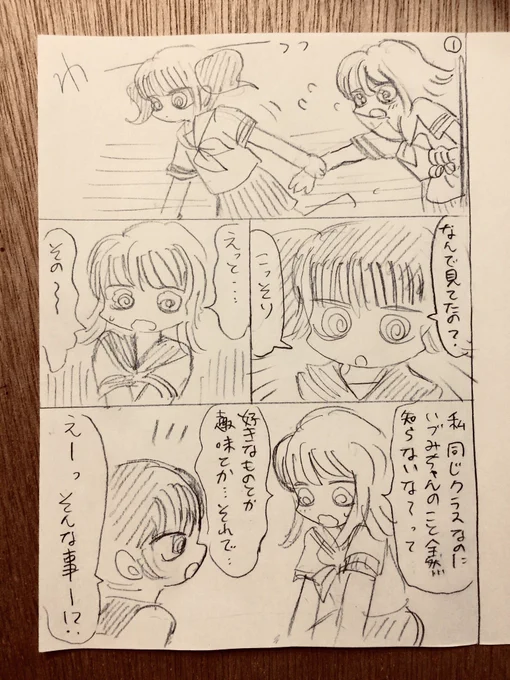 ①
っっ
なんで見てたの?
こっそり
えっと…
その〜〜
私 同じクラスなのに
いづみちゃんのこと全然
知らないな〜って
好きなものとか
趣味とか…それで…
えーっ そんな事ー!?